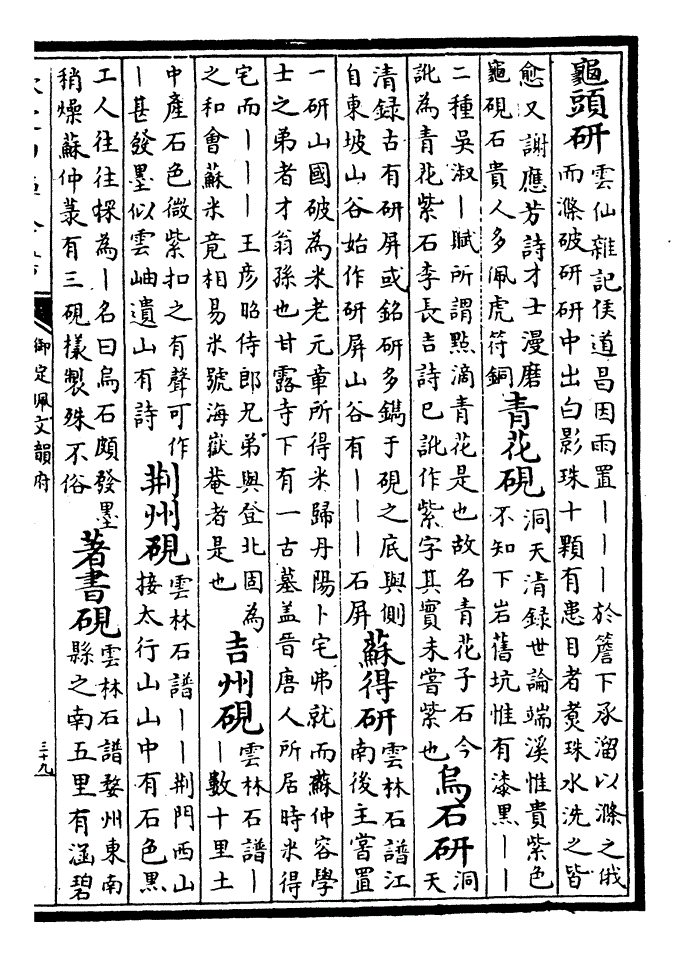 龜頭研雲仙雜記侯道昌因雨置丨丨丨於簷下承溜以滌之俄
而滌破研研中出白影珠十顆有患目者煑珠水洗之皆
愈又謝應芳詩才士漫磨
龜硯石貴人多佩虎符銅
青花硯洞天清録世論端溪惟貴紫色
不知下岩舊坑惟有漆黑丨丨
二種吳淑丨賦所謂點滴青花是也故名青花子石今
訛為青花紫石李長吉詩已訛作紫字其實未嘗紫也
烏石研洞
天
清録古有研屏或銘研多鐫于硯之底與側
自東坡山谷始作研屏山谷有丨丨丨石屏
蘇得研雲林石譜江
南後主嘗置
一研山國破為米老元章所得米歸丹陽卜宅弗就而蘇仲容學
士之弟者才翁孫也甘露寺下有一古墓盖晉唐人所居時米得
宅而丨丨丨王彦昭侍郎兄弟與登北固為
之和會蘇米竟相易米號海嶽菴者是也
吉州硯雲林石譜丨
丨數十里土
中產石色微紫扣之有聲可作
丨甚發墨似雲岫遺山有詩
荆州硯雲林石譜丨丨荆門西山
接太行山山中有石色黑
工人往往探為丨名曰烏石頗發墨
稍燥蘇仲恭有三硯樣製殊不俗
著書硯雲林石譜婺州東南
縣之南五里有涵碧
御定佩文韻府
三十九